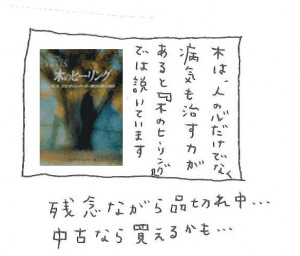 木のヒーリング
木は、人の心だけでなく
病気も治す力が
あると『木のヒーリング』
では説いています
残念ながら品切れ中…
中古なら買えるかも…